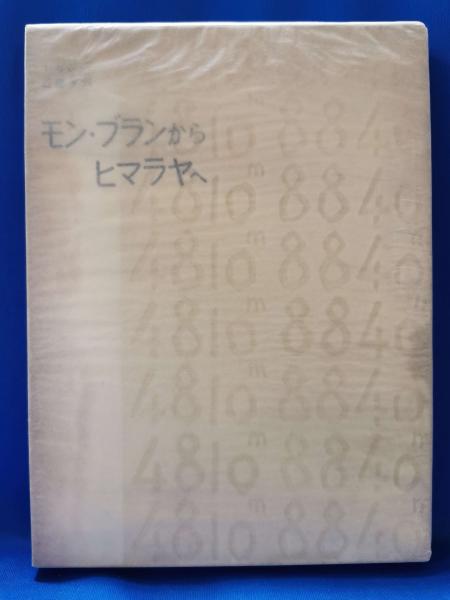 モン・ブランから
ヒマラヤへ
4810m 8840
4810m 8840
4810m 8840
4810m 8840
4810m 8840
4810m 8840
4810m 8840